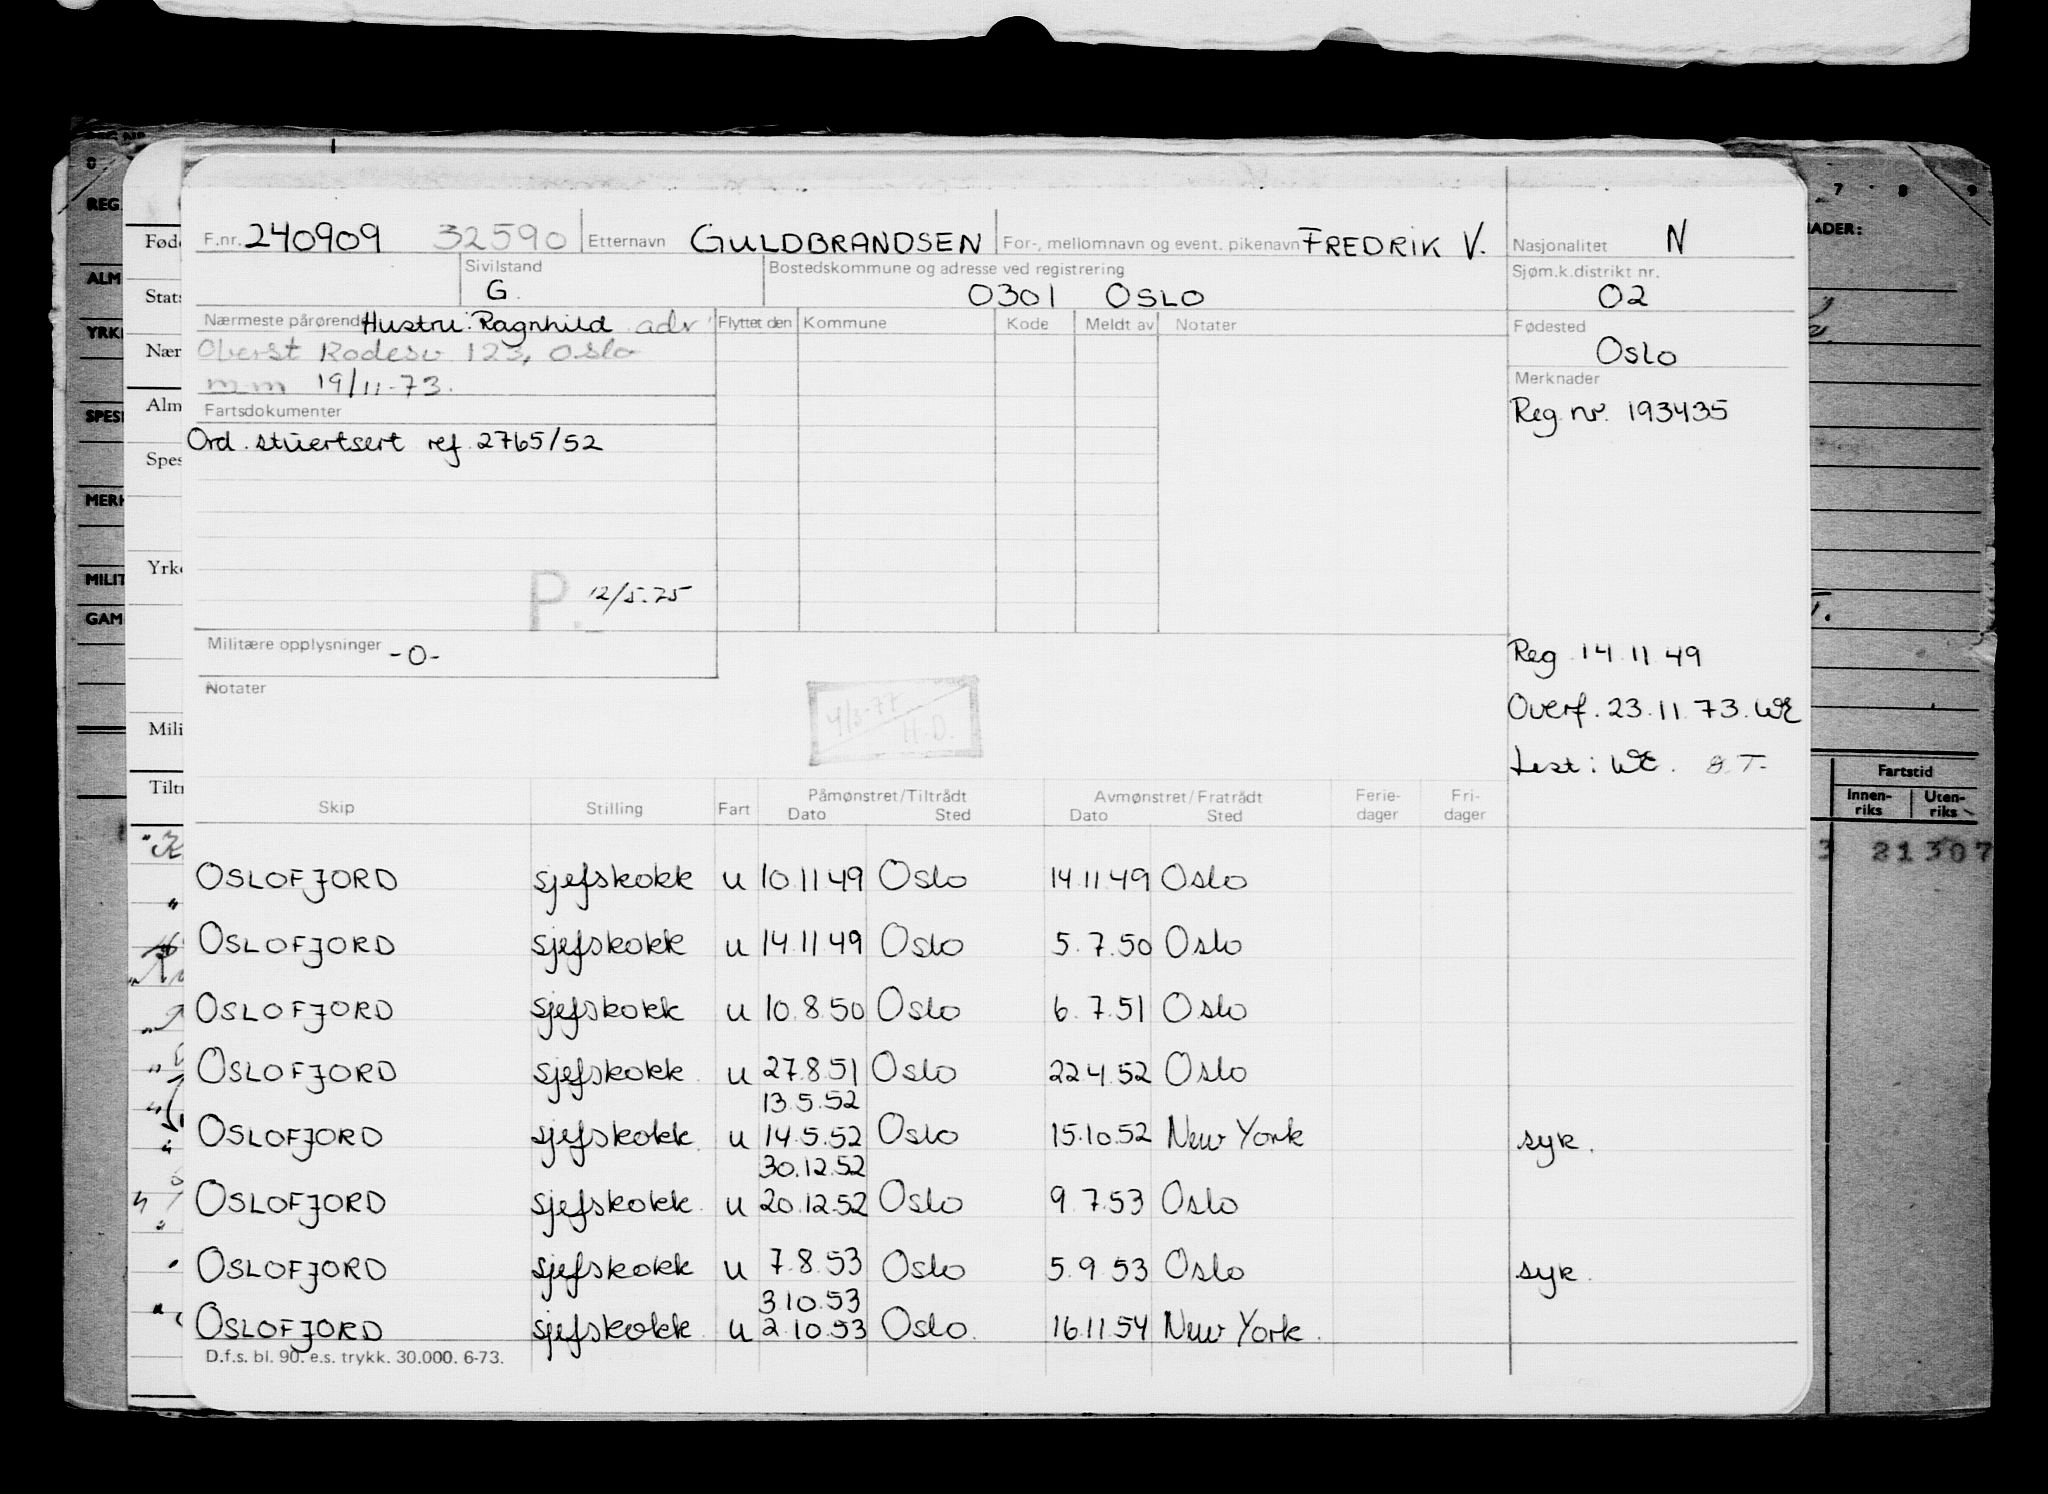 F.nr. 240909 32590 Etternavn GULDBRANDSEN For-, mellomnavn og event. pikenavn FREDRIK V. Nasjonalitet N
Sivilstand G. Bostedskommune og adresse ved registrering 0301 OSLO Sjøm.k.distrikt nr. 02
Nærmeste pårørende Hustru: Ragnhild adr Flyttet den Kommune Kode Meldt av Notater Fødested
Oberst Rodesv 123, Oslo Oslo
m.m 19/11-73. Merknader
Fartsdokumenter Reg. nr. 193435
Ord. stuertsert ref. 2765/52
P. 12/5.75
Militære opplysninger -0- Reg. 14.11.49
Notater
4/3-77 H.D. Overf. 23.11.73. WE
Lest: WE. O.T.
Skip Stilling Fart Påmønstret/Tiltrådt Avmønstret/Fratrådt Ferie- Fri-
Dato Sted Dato Sted dager dager
OSLOFJORD sjefskokk u 10.11 49 Oslo 14.11.49 Oslo
OSLOFJORD sjefskokk u 14.11 49 Oslo 5.7.50 Oslo
OSLOFJORD sjefskokk u 10.8.50 Oslo 6.7.51 Oslo
OSLOFJORD sjefskokk u 27.8.51 Oslo 22.4.52 Oslo
13.5.52
OSLOFJORD sjefskokk u 14.5.52 Oslo 15.10.52 New York syk.
30.12.52
OSLOFJORD sjefskokk u 20.12.52 Oslo 9.7.53 Oslo
OSLOFJORD sjefskokk u 7.8.53 Oslo 5.9.53 Oslo syk.
3.10.53
OSLOFJORD sjefskokk u 2.10.53 Oslo. 16.11.54 New York.
D.f.s. bl. 90. e.s. trykk. 30.000. 6-73.
0
REG.
ALM
YRK
SPES
MER
MILIT
GAM
Fød
Stats
Nær
Alm
Spes
Yrke
Mili
Tiltr
7 8 9
NADER:
T.
Fartstid
Innen-riks Uten-riks
3 21307